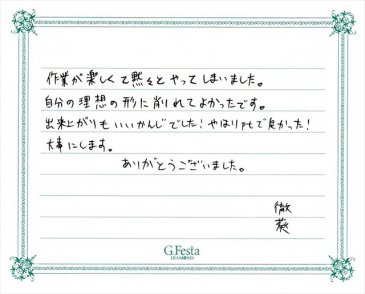 作業が楽しくて黙々とやってしまいました。
自分の理想の形に削れてよかったです。
出来上がりもいいかんじでした！やはりptで良かった！
大事にします。
ありがとうございました。
徹
葵
G.Festa
DIAMOND